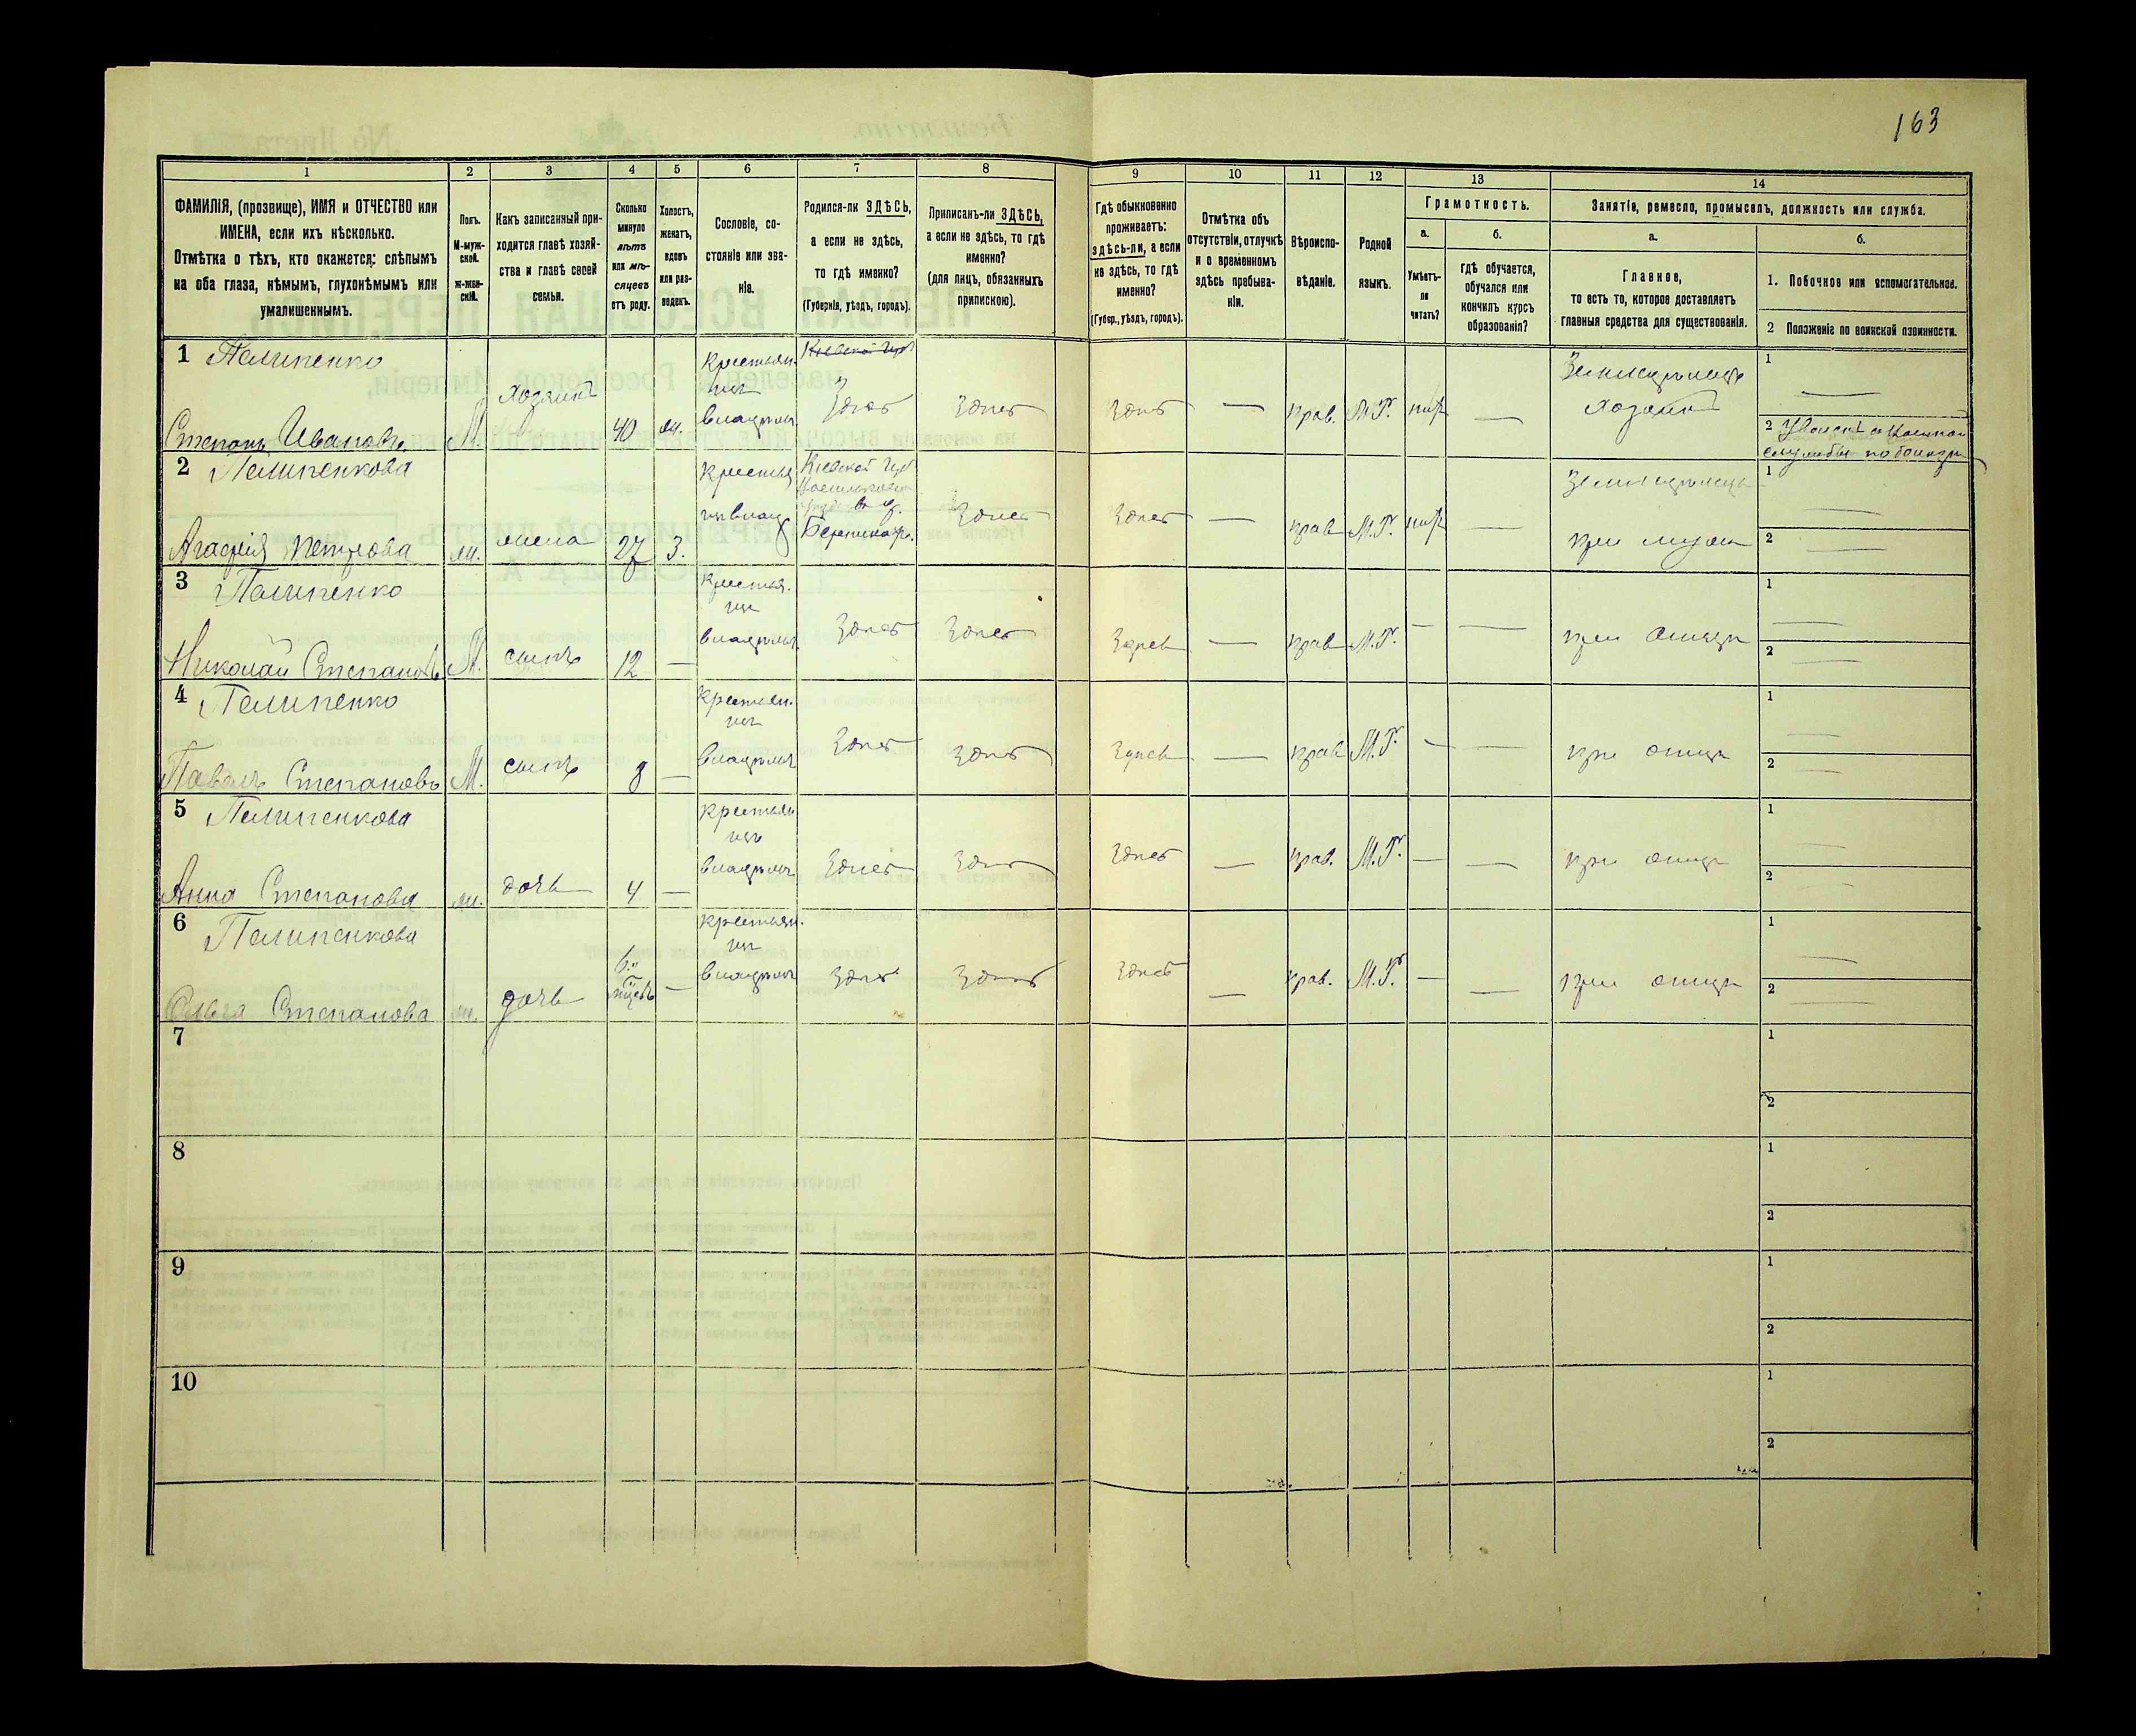 163
1
2
3
4
5
6
7
8
9
10
11
12
13
14
ФАМИЛІЯ, (прозвище), ИМЯ и ОТЧЕСТВО или
ИМЕНА, если ихъ нѣсколько.
Отмѣтка о тѣхъ, кто окажется: слѣпымъ
на оба глаза, нѣмымъ, глухонѣмымъ или
умалишеннымъ.
Полъ.
М-муж-
ской.
ж-жен-
скій.
Какъ записанный при-
ходится главѣ хозяй-
ства и главѣ своей
семьи.
Сколько
минуло
лѣтъ
или мѣ-
сяцевъ
отъ роду.
Холостъ,
женатъ,
вдовъ
или раз-
веденъ.
Сословіе, со-
стояніе или зва-
ніе.
Родился-ли ЗДѢСЬ,
а если не здѣсь,
то гдѣ именно?
(Губернія, уѣздъ, городъ).
Приписанъ-ли ЗДѢСЬ,
а если не здѣсь, то гдѣ
именно?
(для лицъ, обязанныхъ
припискою).
Гдѣ обыкновенно
проживаетъ:
здѣсь-ли, а если
не здѣсь, то гдѣ
именно?
(Губер., уѣздъ, городъ).
Отмѣтка объ
отсутствіи, отлучкѣ
и о временномъ
здѣсь пребыва-
ніи.
Вѣроиспо-
вѣданіе.
Родной
языкъ.
Грамотность.
а.
Умѣетъ-
ли
читать?
б.
гдѣ обучается,
обучался или
кончилъ курсъ
образованія?
Занятіе, ремесло, промыселъ, должность или служба.
а.
Главное,
то есть то, которое доставляетъ
главныя средства для существованія.
б.
1. Побочное или вспомогательное.
2 Положеніе по воинской повинности.
1 Пелипенко
Степанъ Ивановъ М. хозяинъ 40 ж. Крестьян. Здѣсь Здѣсь Здѣсь — прав. М.Р. — хозяинъ
1 —
2
2 Пелипенкова
Агафія Петрова ж. жена 27 З. Кіевской Губ. Здѣсь Здѣсь — прав М.Р. — при мужѣ
1 —
2 —
3 Пелипенко
Николай Степановъ М. сынъ 12 — Здѣсь Здѣсь Здѣсь — прав М.Р. — — при отцѣ
1 —
2 —
4 Пелипенко
Павелъ Степановъ М. сынъ 8 — Крестьян. Здѣсь Здѣсь Здѣсь — прав М.Р. — — при отцѣ
1 —
2 —
5 Пелипенкова
Анна Степанова ж. дочь 4 — Здѣсь Здѣсь Здѣсь — прав. М.Р. — — при отцѣ
1 —
2 —
6 Пелипенкова
Ольга Степанова ж. дочь 6 — Крестьян. Здѣсь Здѣсь Здѣсь — прав. М.Р. — — при отцѣ
1 —
2 —
7
1
2
8
1
2
9
1
2
10
1
2